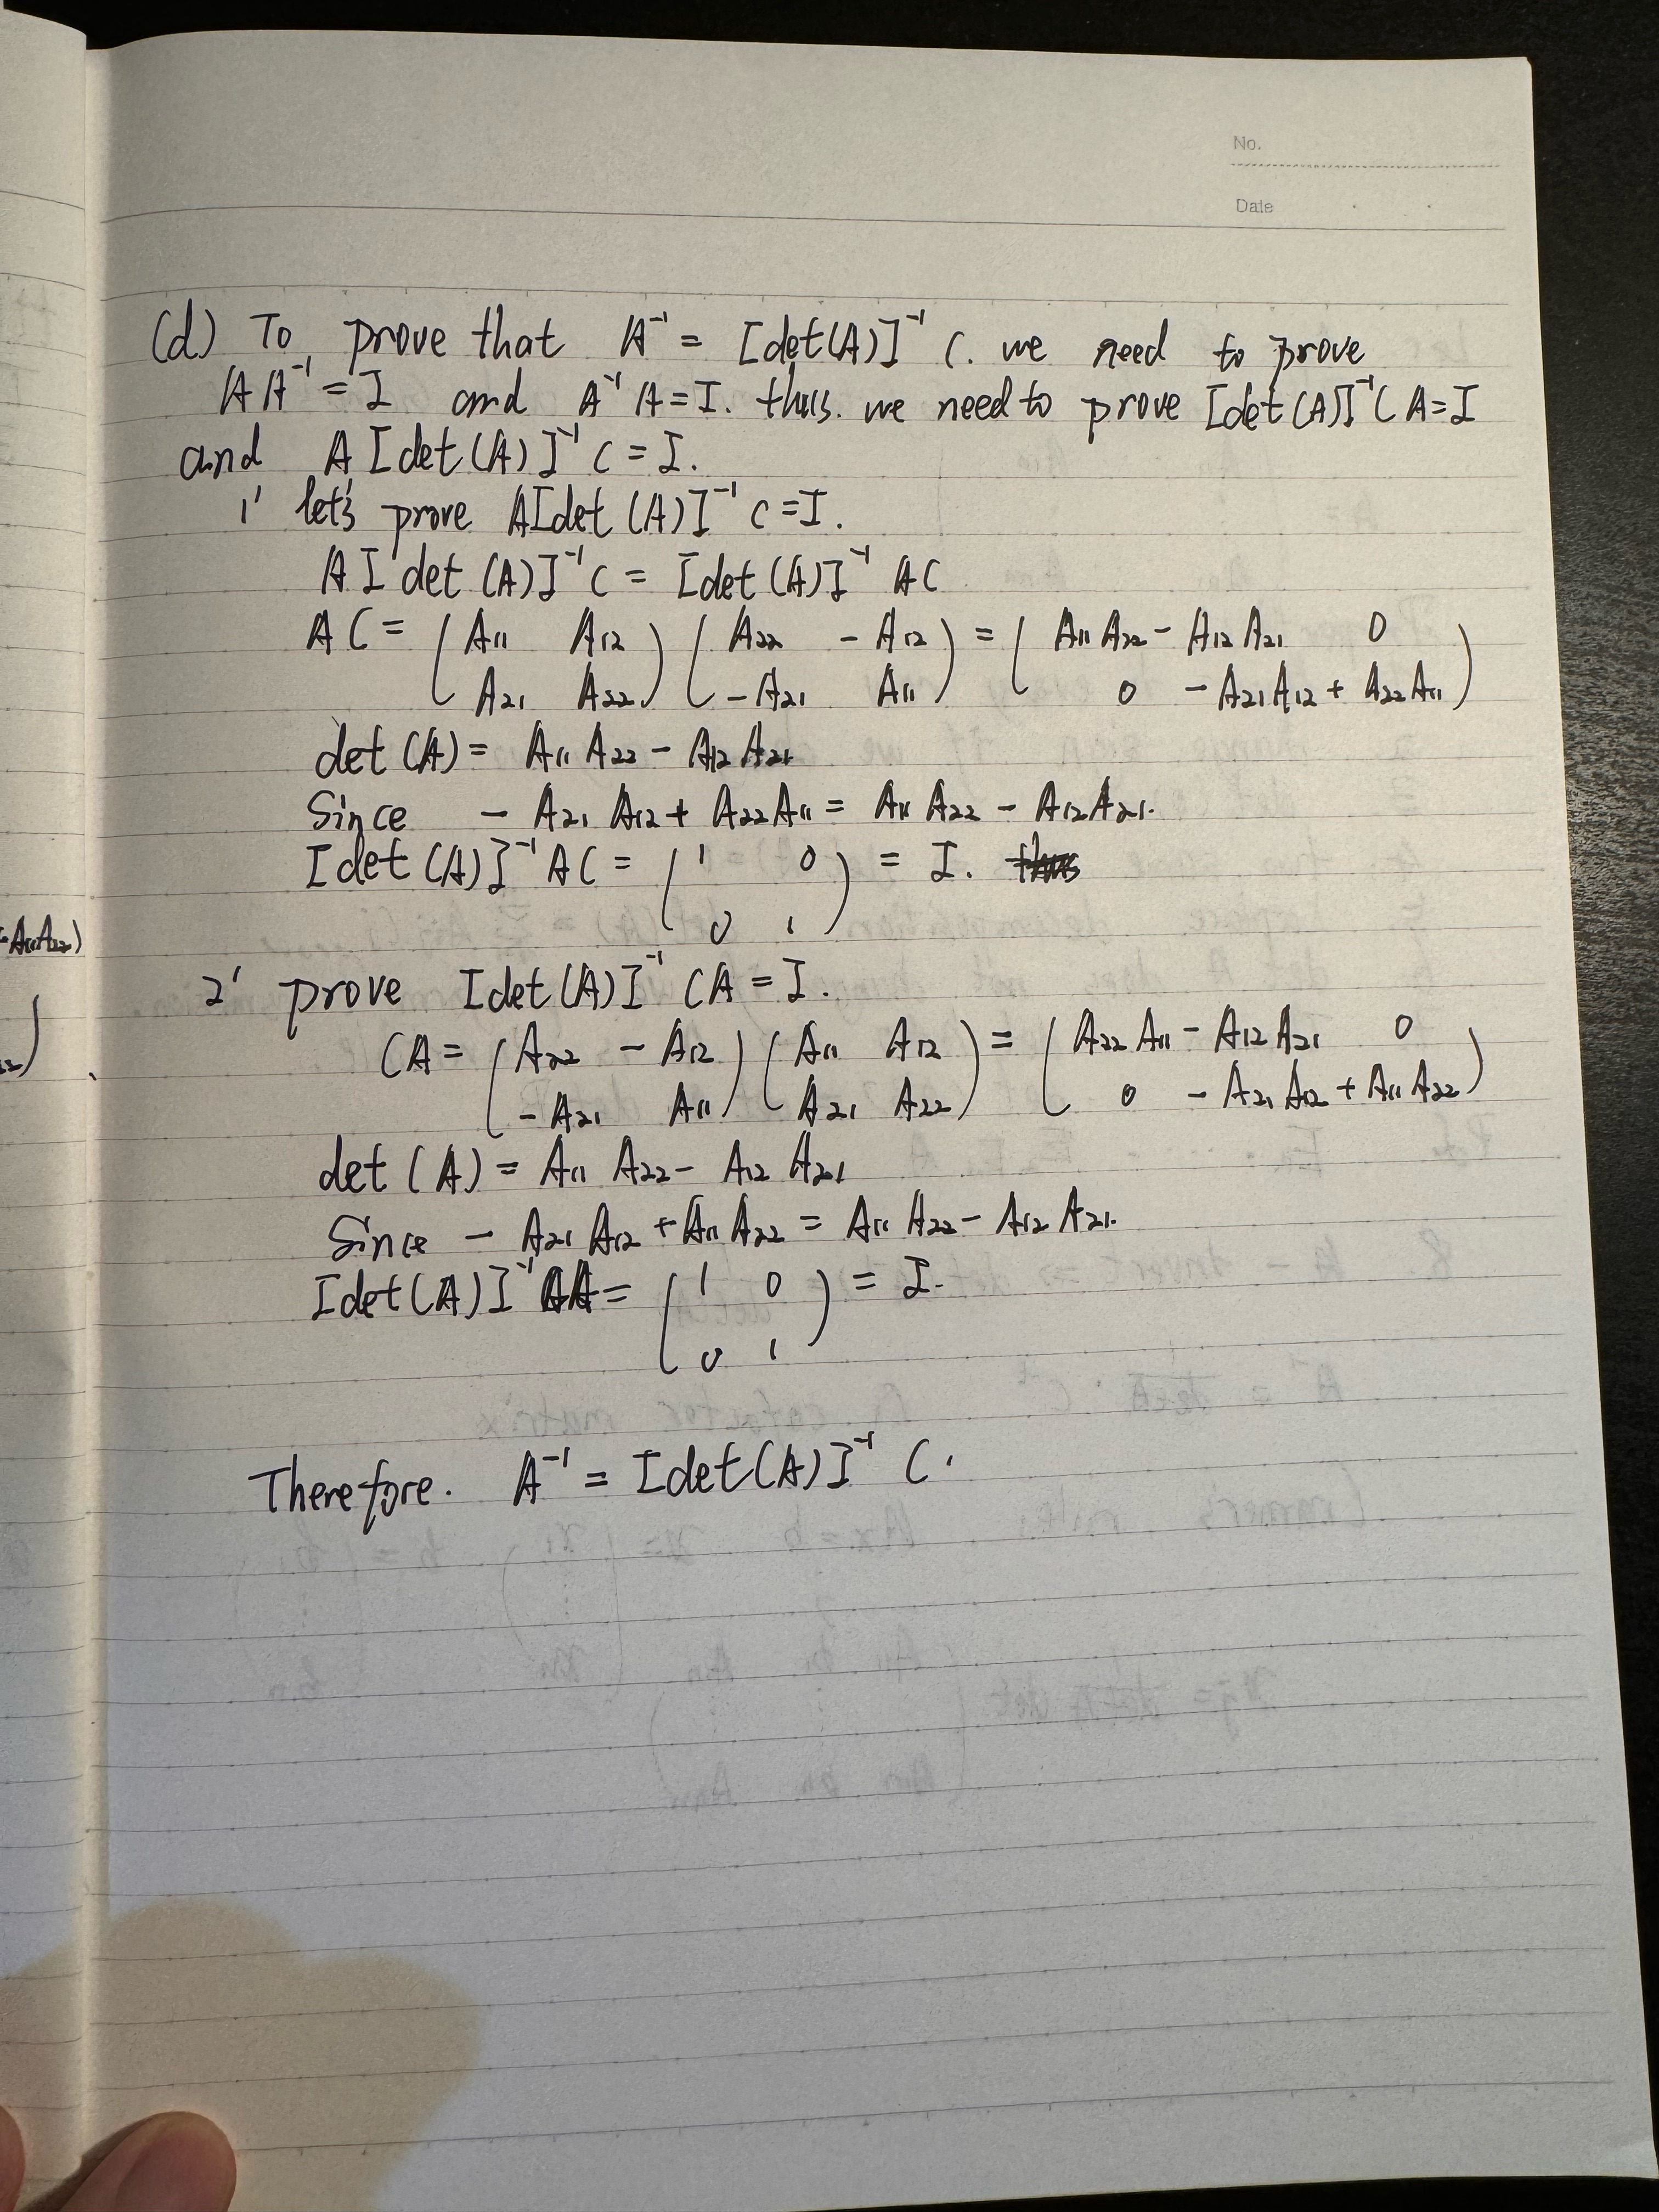 No.
Date
(d) To prove that A⁻¹ = [det(A)]⁻¹ C. we need to prove
AA⁻¹ = I and A⁻¹A = I. thus. we need to prove [det(A)]⁻¹CA = I
and A[det(A)]⁻¹C = I.
1' let's prove A[det(A)]⁻¹C = I.
A[det(A)]⁻¹C = [det(A)]⁻¹AC
AC = (A₁₁ A₁₂) (A₂₂ -A₁₂) = (A₁₁A₂₂ - A₁₂A₂₁ 0)
A₂₁ A₂₂ -A₂₁ A₁₁ 0 -A₂₁A₁₂ + A₂₂A₁₁
det(A) = A₁₁A₂₂ - A₁₂A₂₁
Since -A₂₁A₁₂ + A₂₂A₁₁ = A₁₁A₂₂ - A₁₂A₂₁.
[det(A)]⁻¹AC = (1 0) = I.
0 1
2' prove [det(A)]⁻¹CA = I.
-A₁₁A₂₂)
CA = (A₂₂ -A₁₂) (A₁₁ A₁₂) = (A₂₂A₁₁ - A₁₂A₂₁ 0)
-A₂₁ A₁₁ A₂₁ A₂₂ 0 -A₂₁A₁₂ + A₁₁A₂₂
det(A) = A₁₁A₂₂ - A₁₂A₂₁
Since -A₂₁A₁₂ + A₁₁A₂₂ = A₁₁A₂₂ - A₁₂A₂₁.
[det(A)]⁻¹CA = (1 0) = I.
0 1
Therefore. A⁻¹ = [det(A)]⁻¹ C.